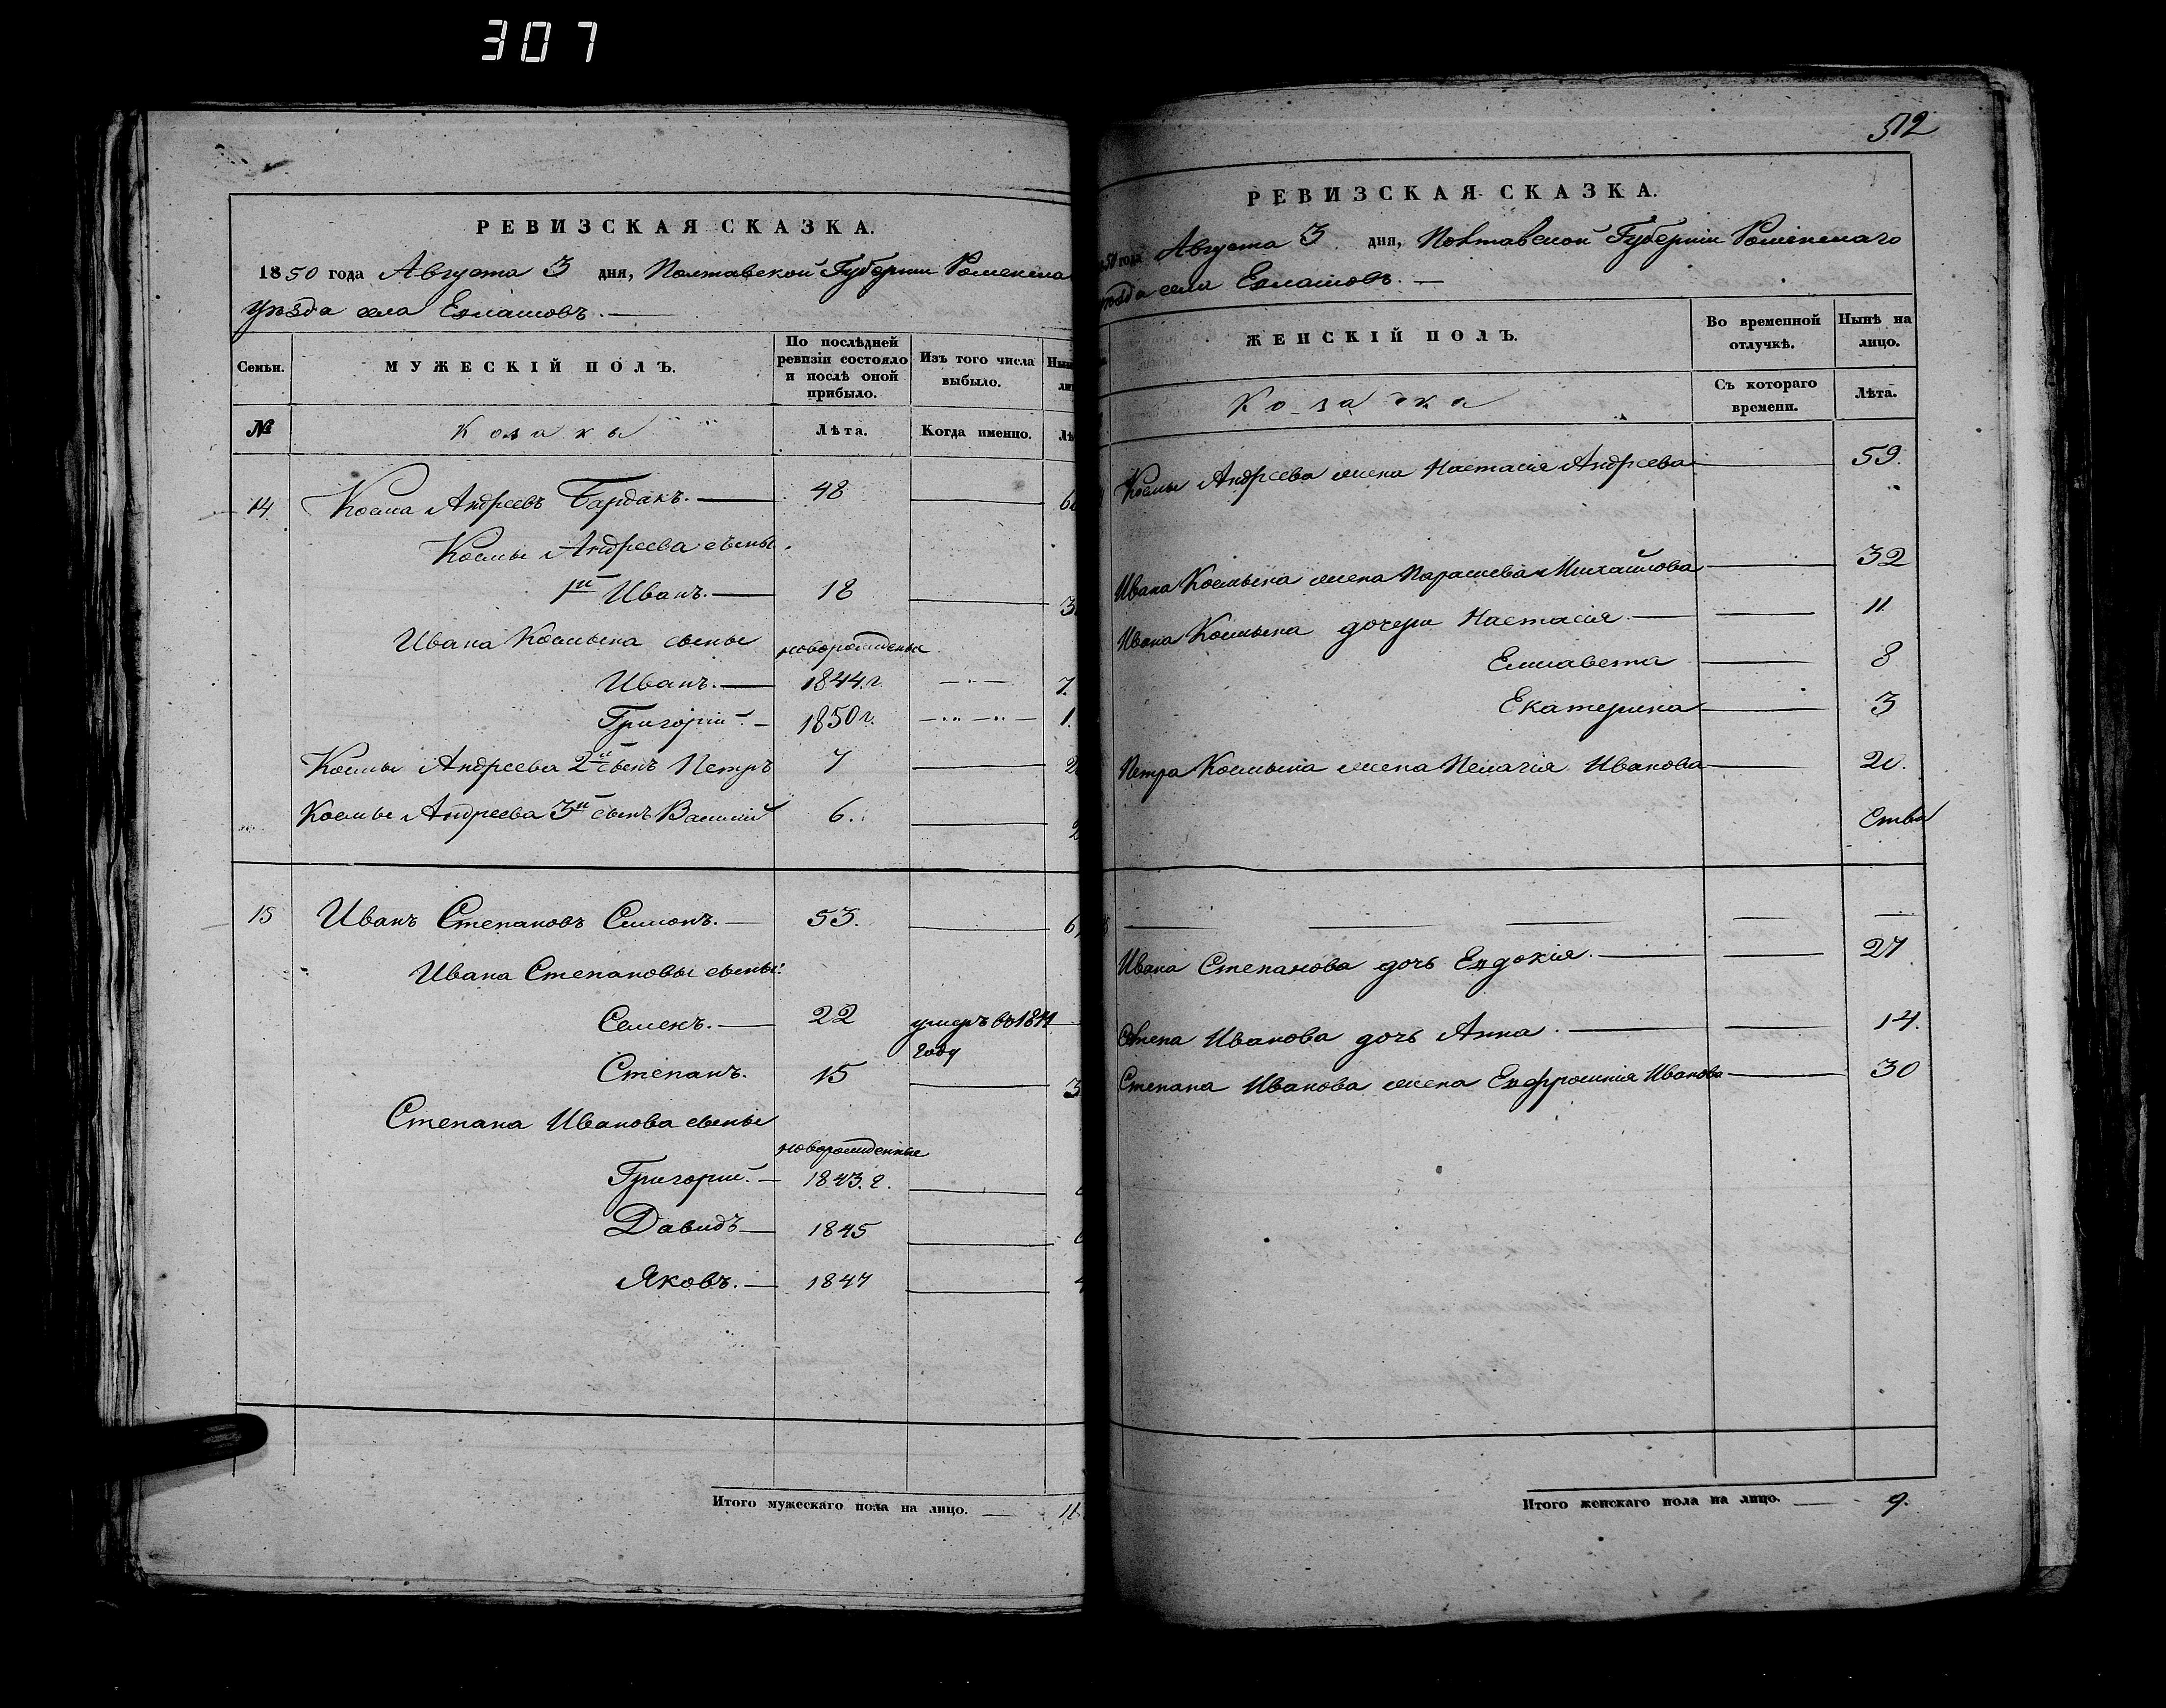 307
РЕВИЗСКАЯ СКАЗКА.
1850 года Августа 3 дня, Полтавской Губерніи Роменска
уѣзда села
Семьи.
МУЖЕСКІЙ ПОЛЪ.
По послѣдней ревизіи состояло и послѣ оной прибыло.
Изъ того числа выбыло.
№
Козаки
Лѣта.
Когда именно.
14 Косма Андреевъ Бардакъ. 48
Космы Андреева сыны
1й Иванъ. 18
Ивана Космына сыны новорожденны
Иванъ. 1844 г. 7.
Григорій. 1850 г. 1.
Космы Андреева 2й сынъ Петръ 7
Космы Андреева 3й сынъ Василій 6.
15 Иванъ Степановъ Симонъ. 53.
Ивана Степановы сыны:
Семенъ. 22 умеръ въ 18
году
Степанъ. 15
Степана Иванова сыны
новорожденные
Григорій. 1843. г.
Давидъ 1845
Яковъ. 1847
Итого мужескаго пола на лицо. 11
512
РЕВИЗСКАЯ СКАЗКА.
50 года Августа 3 дня, Полтавской Губерніи Роменскаго
уѣзда села
ЖЕНСКІЙ ПОЛЪ.
Во временной отлучкѣ.
Нынѣ на лицо.
Козачки
Съ котораго времени.
Лѣта.
Космы Андреева жена Настасія Андреева 59.
Ивана Космына жена Параскева Михайлова 32
Ивана Космына дочери Настасія 11
Елисавета 8
Екатерина 3
Петра Космына жена Пелагія Иванова 20.
Ивана Степанова дочь Евдокія. 27
Иванова дочь Анна. 14.
Степана Иванова жена Евфросинія Иванова 30
Итого женскаго пола на лицо. 9.